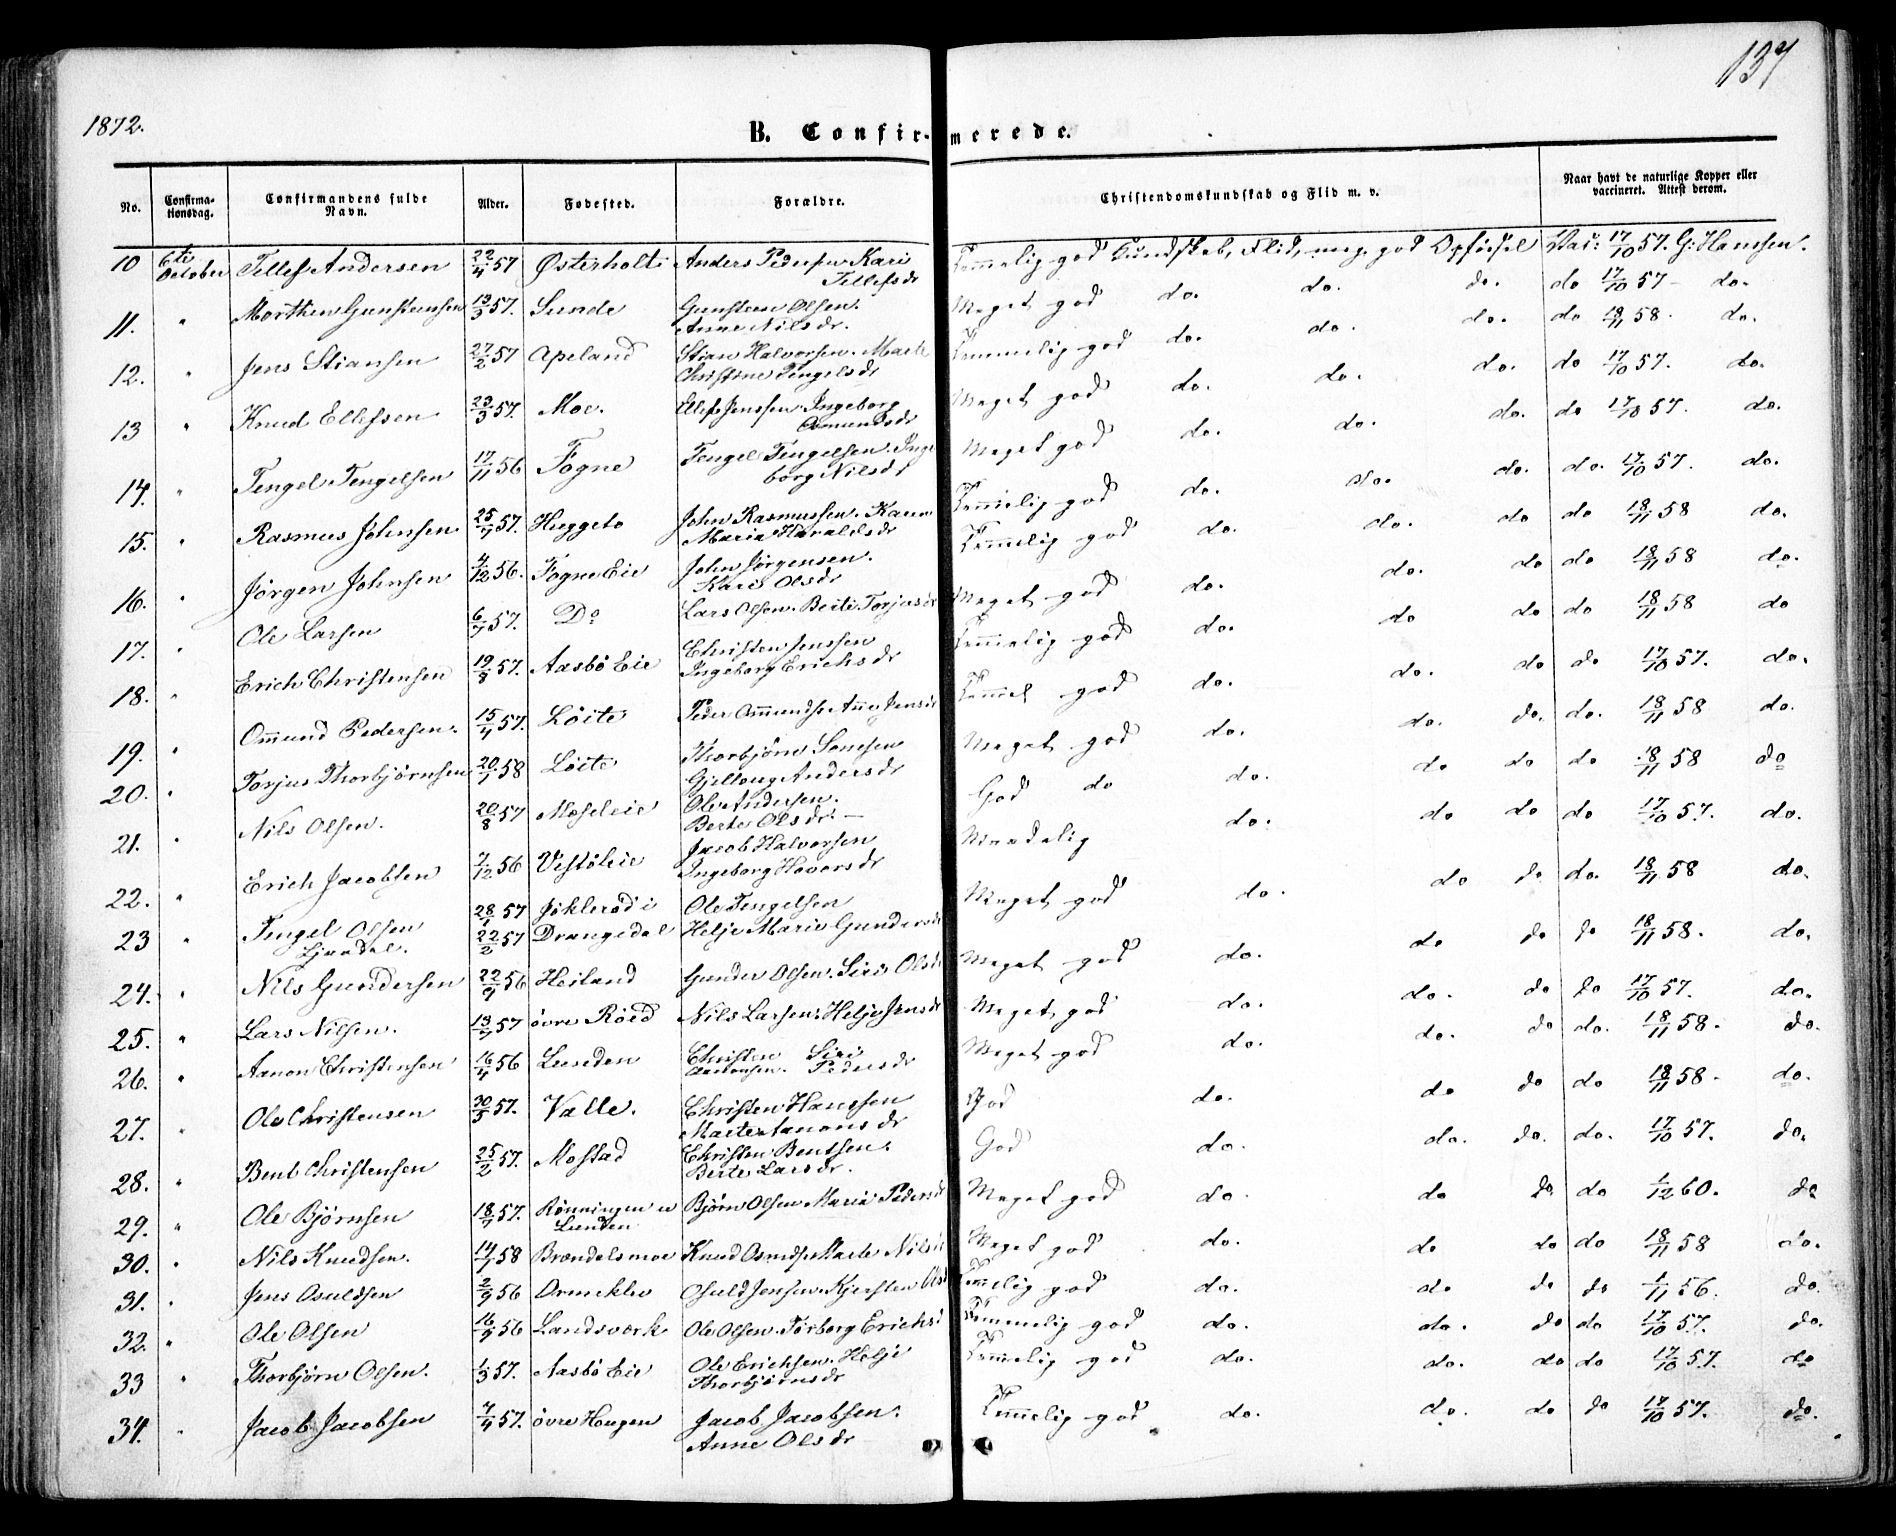 137
1872.
B. Confirmerede.
No. Confirmationsdag. Confirmandens fulde Navn. Alder. Fødested. Forældre. Christendomskundskab og Flid m. v. Naar havt de naturlige Kopper eller vaccineret. Attest derom.
10 6te October Tellef Andersen 22/4 57 Østerholt Anders Pedersen Kari Tellefsdr Temmelig god Kundskab, Flid, meg. god Opførsel Vac: 17/10 57. G: Hansen.
11. " Morthen Gunstensen 13/3 57. Sunde Gunsten Olsen. Anne Nilsdr. Meget god do. do. do. do 17/10 57 - do.
12. " Jens Stiansen 27/2 57 Apeland Stian Halvorsen. Marte Christine Tengelsdr Temmelig god do. do. do. do 18/11 58. do.
13 " Knud Ellefsen 23/3 57. Moe. Ellef Jensen Ingeborg Osmundsdr Meget god do. do. do. do 17/10 57. do.
14. " Tengel Tengelsen 17/11 56 Fogne Tengel Tengelsen. Ingeborg Nilsdr Meget god do. do. do. do 17/10 57. do.
15. " Rasmus Johnsen. 25/7 57. Huggeto John Rasmussen. Karen Maria Haraldsdr Temmelig god do. do. do. do. 17/10 57. do.
16. " Jørgen Johnsen 4/12 56. Fogne Eie John Jørgensen. Kari Olsdr Temmelig god do. do. do do 18/11 58 do.
17. " Ole Larsen 6/7 57. Do Lars Olsen. Berte Torjusdr Meget god do. do. do do 18/11 58 do.
18. " Erich Christensen 19/8 57. Aasbø Eie Christen Jensen Ingeborg Erichsdr Temmelig god do. do do do 18/11 58 do
19. " Ommund Pedersen. 15/4 57. Løite Peder Ommundsen Anne Jensdr Temmel god do. do. do do 17/10 57. do.
20. " Torjus Thorbjørnsen 20/1 58 Løite Thorbjørn Gjellaug Andersdr Meget god do. do. do. do. 18/11 58 do.
21. " Nils Olsen. 20/8 57 Moseleie Ole Andersen. Berte Olsdr. God do do. do do do 18/11 58 do
22. " Erich Jacobsen 7/12 56 Vestøleie Jacob Halvorsen Ingeborg Hovorsdr Maadelig do. do do do 17/10 57. do.
23 " Tengel Olsen Ljaadal. 28/1 57 22/2 57 Jøklerød i Drangedal Ole Tengelsen Helje Marie Gundersdr Meget god do. do do do. 18/11 58 do.
24. " Nils Gundersen 22/9 56 Heiland Gunder Olsen. Siri Olsdr Meget god do. do do do 18/11 58. do.
25. " Lars Nilsen. 13/7 57 øvre Røed Nils Larsen. Helje Jensdr Meget god do. do. do do 17/10 57. do.
26. " Aanon Christensen 16/4 56 Lunden Christen Aanonsen. Siri Pedersdr Meget god do. do. do do. 18/11 58. do.
27. " Ole Christensen 30/5 57. Valle. Christen Hansen Marte Aanonsdr God do. do do do 18/11 58. do.
28. " Bent Christensen 25/2 57. Mostad Christen Bentsen. Berte Larsdr. God do. do. do. do. 17/10 57. do.
29. " Ole Bjørnsen 18/7 57. Rønningen u Lunden Bjørn Olsen Maria Pedersdr Meget god do. do do do 1/12 60. do
30. " Nils Knudsen. 14/1 58 Brændalsmoe Knud Marte Nilsdr Meget god do. do do do 18/11 58 do.
31. " Jens Osuldsen 2/9 56 Ormeklev Osuld Jensen. Kjersten Temmelig god do. do do do 1/11 56. do.
32. " Ole Olsen 16/9 56 Landsverk Ole Olsen. Tørborg Erichsd Temmelig god do. do. do do 17/10 57. do.
33 " Thorbjørn Olsen. 1/3 57. Aasbø Eie Ole Erichsen. Helje Thorbjørnsdr Temmelig god do. do. do do 17/10 57. do
34. " Jacob Jacobsen 7/4 57. øvre Haugen Jacob Jacobsen. Anne Olsdr Temmelig god do. do. do do 17/10 57. do.